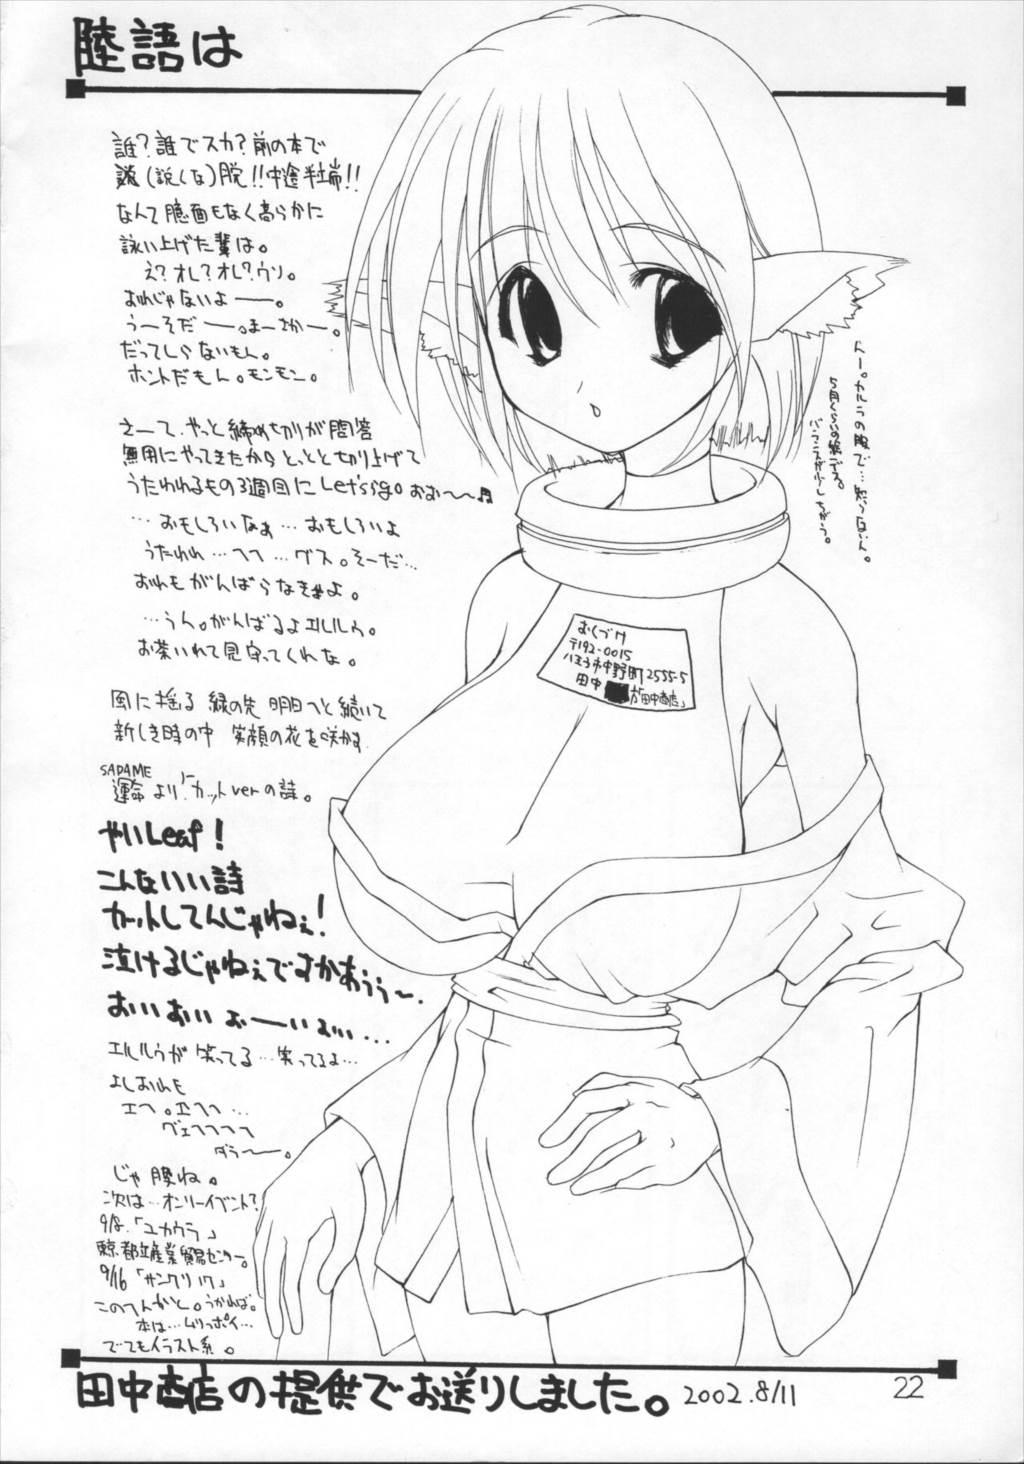 陸語は
誰?誰でスカ?前の本で
(説くな)脱!!中途半端!!
なんて臆面もなく高らかに
詠い上げた輩は。
え?オレ?オレ?ウソ。
おれじゃないよー。
うーそだー。まーさかー。
だってしらないもん。
ホントだもん。モンモン。
さーて、やっと締め切りが問答
無用にやってきたからとっとと切り上げて
うたわれるもの3週目にLet'sgo おお〜〜♬
…おもしろいなぁ…おもしろいよ
うたわれ…へへ…グス。そーだ…
おれもがんばらなきゃよ。
…うん。がんばるよエルルゥ。
お茶いれて見守ってくれな。
風に揺る 緑の先 明日へと続いて
新しき時の中 笑顔の花を咲かす
SADAME
運命より「カットverの詩。
やいLeaf!
こんないい詩
カットしてんじゃねぇ!
泣けるじゃねぇですかあぅぅ〜。
おいおいおーいおい…
エルルゥが笑ってる…笑ってるよ…
よしおれも
エヘ。エヘヘ…
グェヘヘヘヘ
ダラ〜。
じゃ 腰ね。
次は…オンリーイベント?
9/8.「ユカウラ」
東京都立産業貿易センター。
9/16「サンクリ17」
このへんかと。うかれば。
本は…ムリっポイ…
でてもイラスト系。
んー。カルラの服で…知らないん。
5月くらいの絵デス。
バランスが少しちがう。
おくづけ
〒192-0015
八王子市中野町2555-5
田中 が「田中商店」
田中商店の提供でお送りしました。 2002.8/11
22